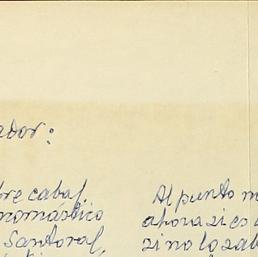 ador:
bre cabal
nomástico
Santoral,
Al punto m
ahora si es
si no lo sab